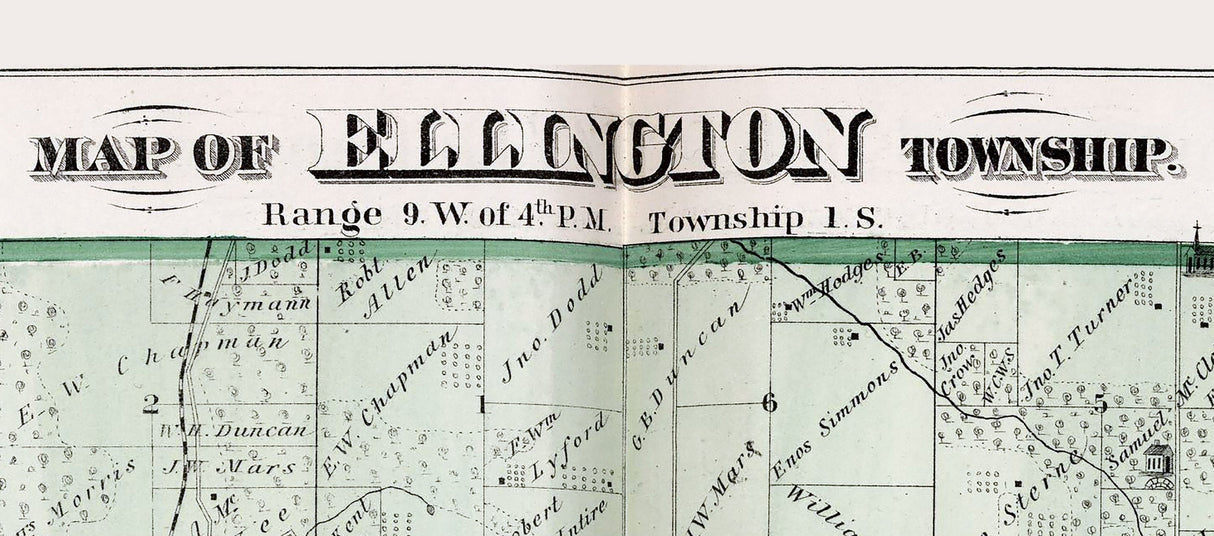 MAP OF ELLINGTON TOWNSHIP.
Range 9. W. of 4th P. M. Township 1. S.
J. Dodd
Robt
Allen
Jno. Dodd
Wm Hodges
E. B.
Jas Hedges
Jno. T. Turner
E. W. Chapman
E. W. Chapman
G. B. Duncan
Enos Simmons
Jno.
Crow
W. C. W. S.
2
1
6
5
W. H. Duncan
J. W. Mars
E. Wm
Lyford
J. W. Mars
Samuel
Sterne
Morris
Mc
Kent
Intire